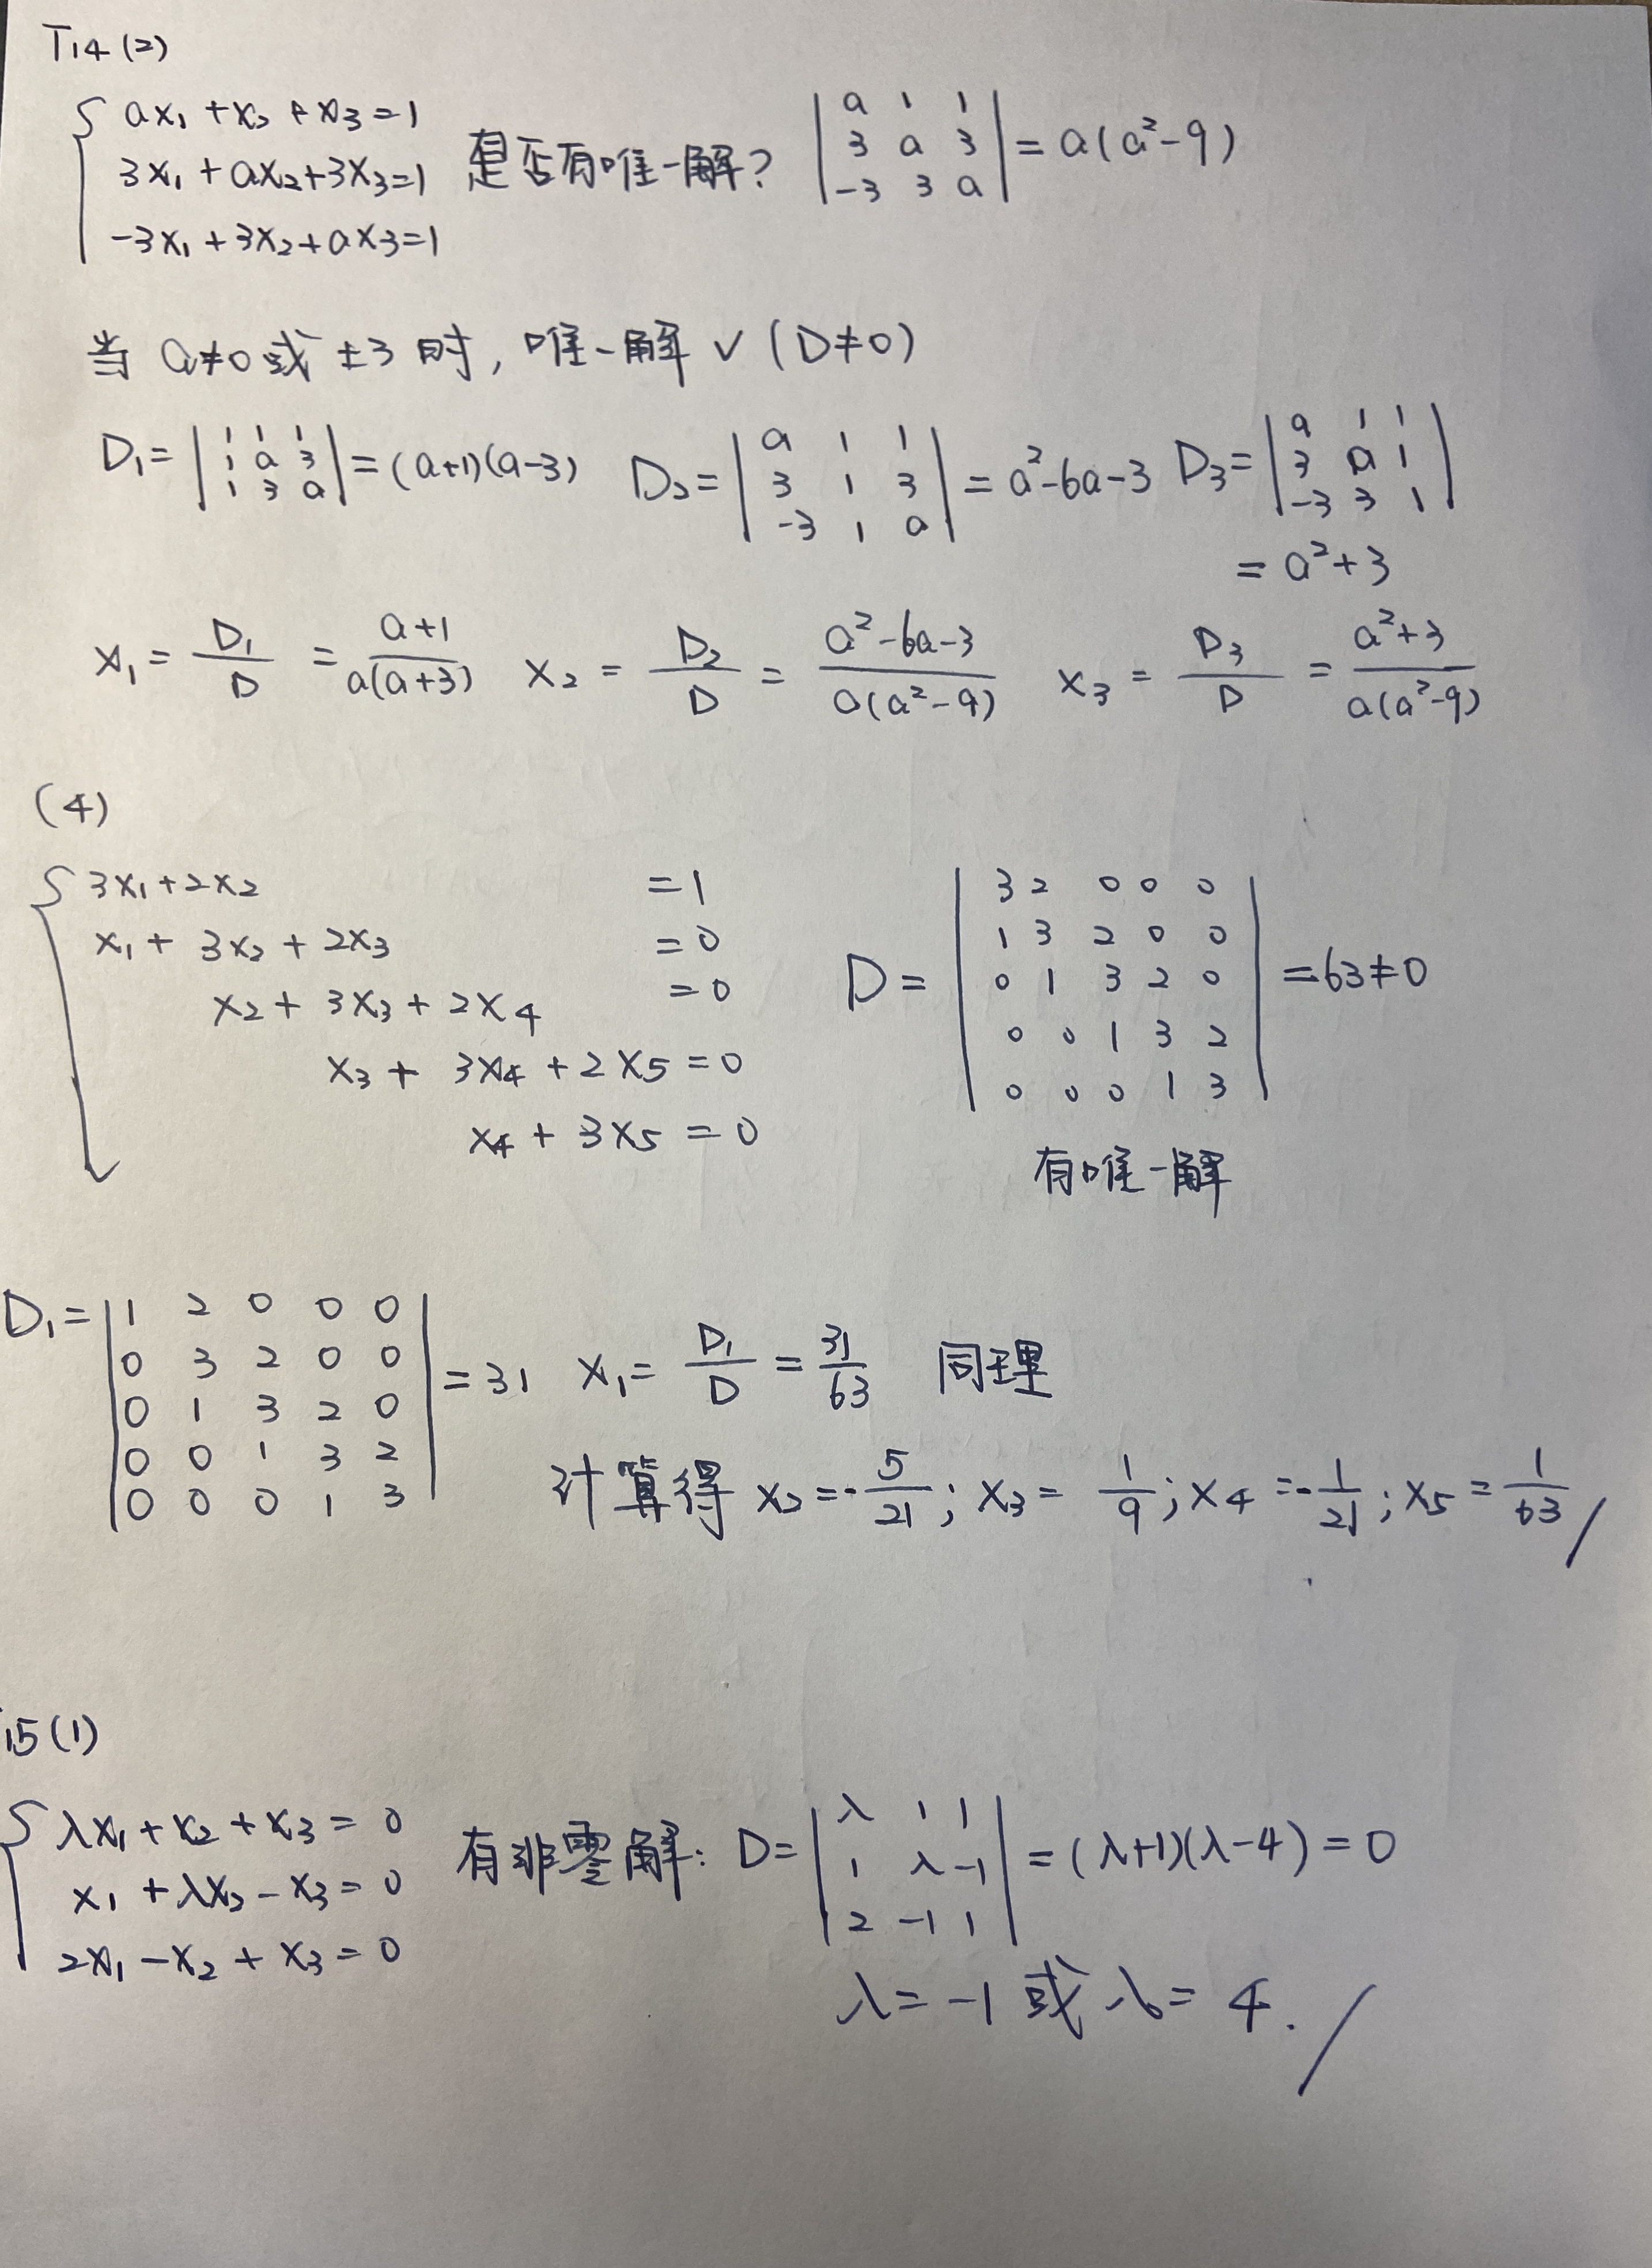 T14(2)
ax₁+x₂+x₃=1
3x₁+ax₂+3x₃=1 是否有唯一解? | a 1 1 ; 3 a 3 ; -3 3 a | = a(a²-9)
-3x₁+3x₂+ax₃=1
当 a≠0或 ±3 时, 唯一解 √ (D≠0)
D₁= | 1 1 1 ; 1 a 3 ; 1 3 a | = (a+1)(a-3) D₂= | a 1 1 ; 3 1 3 ; -3 1 a | = a²-6a-3 D₃= | a 1 1 ; 3 a 1 ; -3 3 1 |
= a²+3
x₁ = D₁/D = a+1/a(a+3) x₂ = D₂/D = a²-6a-3/a(a²-9) x₃ = D₃/D = a²+3/a(a²-9)
(4)
3x₁+2x₂ =1
x₁+3x₂+2x₃ =0
x₂+3x₃+2x₄ =0
x₃+3x₄+2x₅=0
x₄+3x₅=0
D= | 3 2 0 0 0 ; 1 3 2 0 0 ; 0 1 3 2 0 ; 0 0 1 3 2 ; 0 0 0 1 3 | =63≠0
有唯一解
D₁= | 1 2 0 0 0 ; 0 3 2 0 0 ; 0 1 3 2 0 ; 0 0 1 3 2 ; 0 0 0 1 3 | =31 x₁= D₁/D = 31/63 同理
计算得 x₂=-5/21; x₃= 1/9; x₄=-1/21; x₅=1/63
15(1)
λx₁+x₂+x₃=0
x₁+λx₂-x₃=0 有非零解: D= | λ 1 1 ; 1 λ -1 ; 2 -1 1 | =(λ+1)(λ-4)=0
2x₁-x₂+x₃=0
λ=-1 或 λ=4.